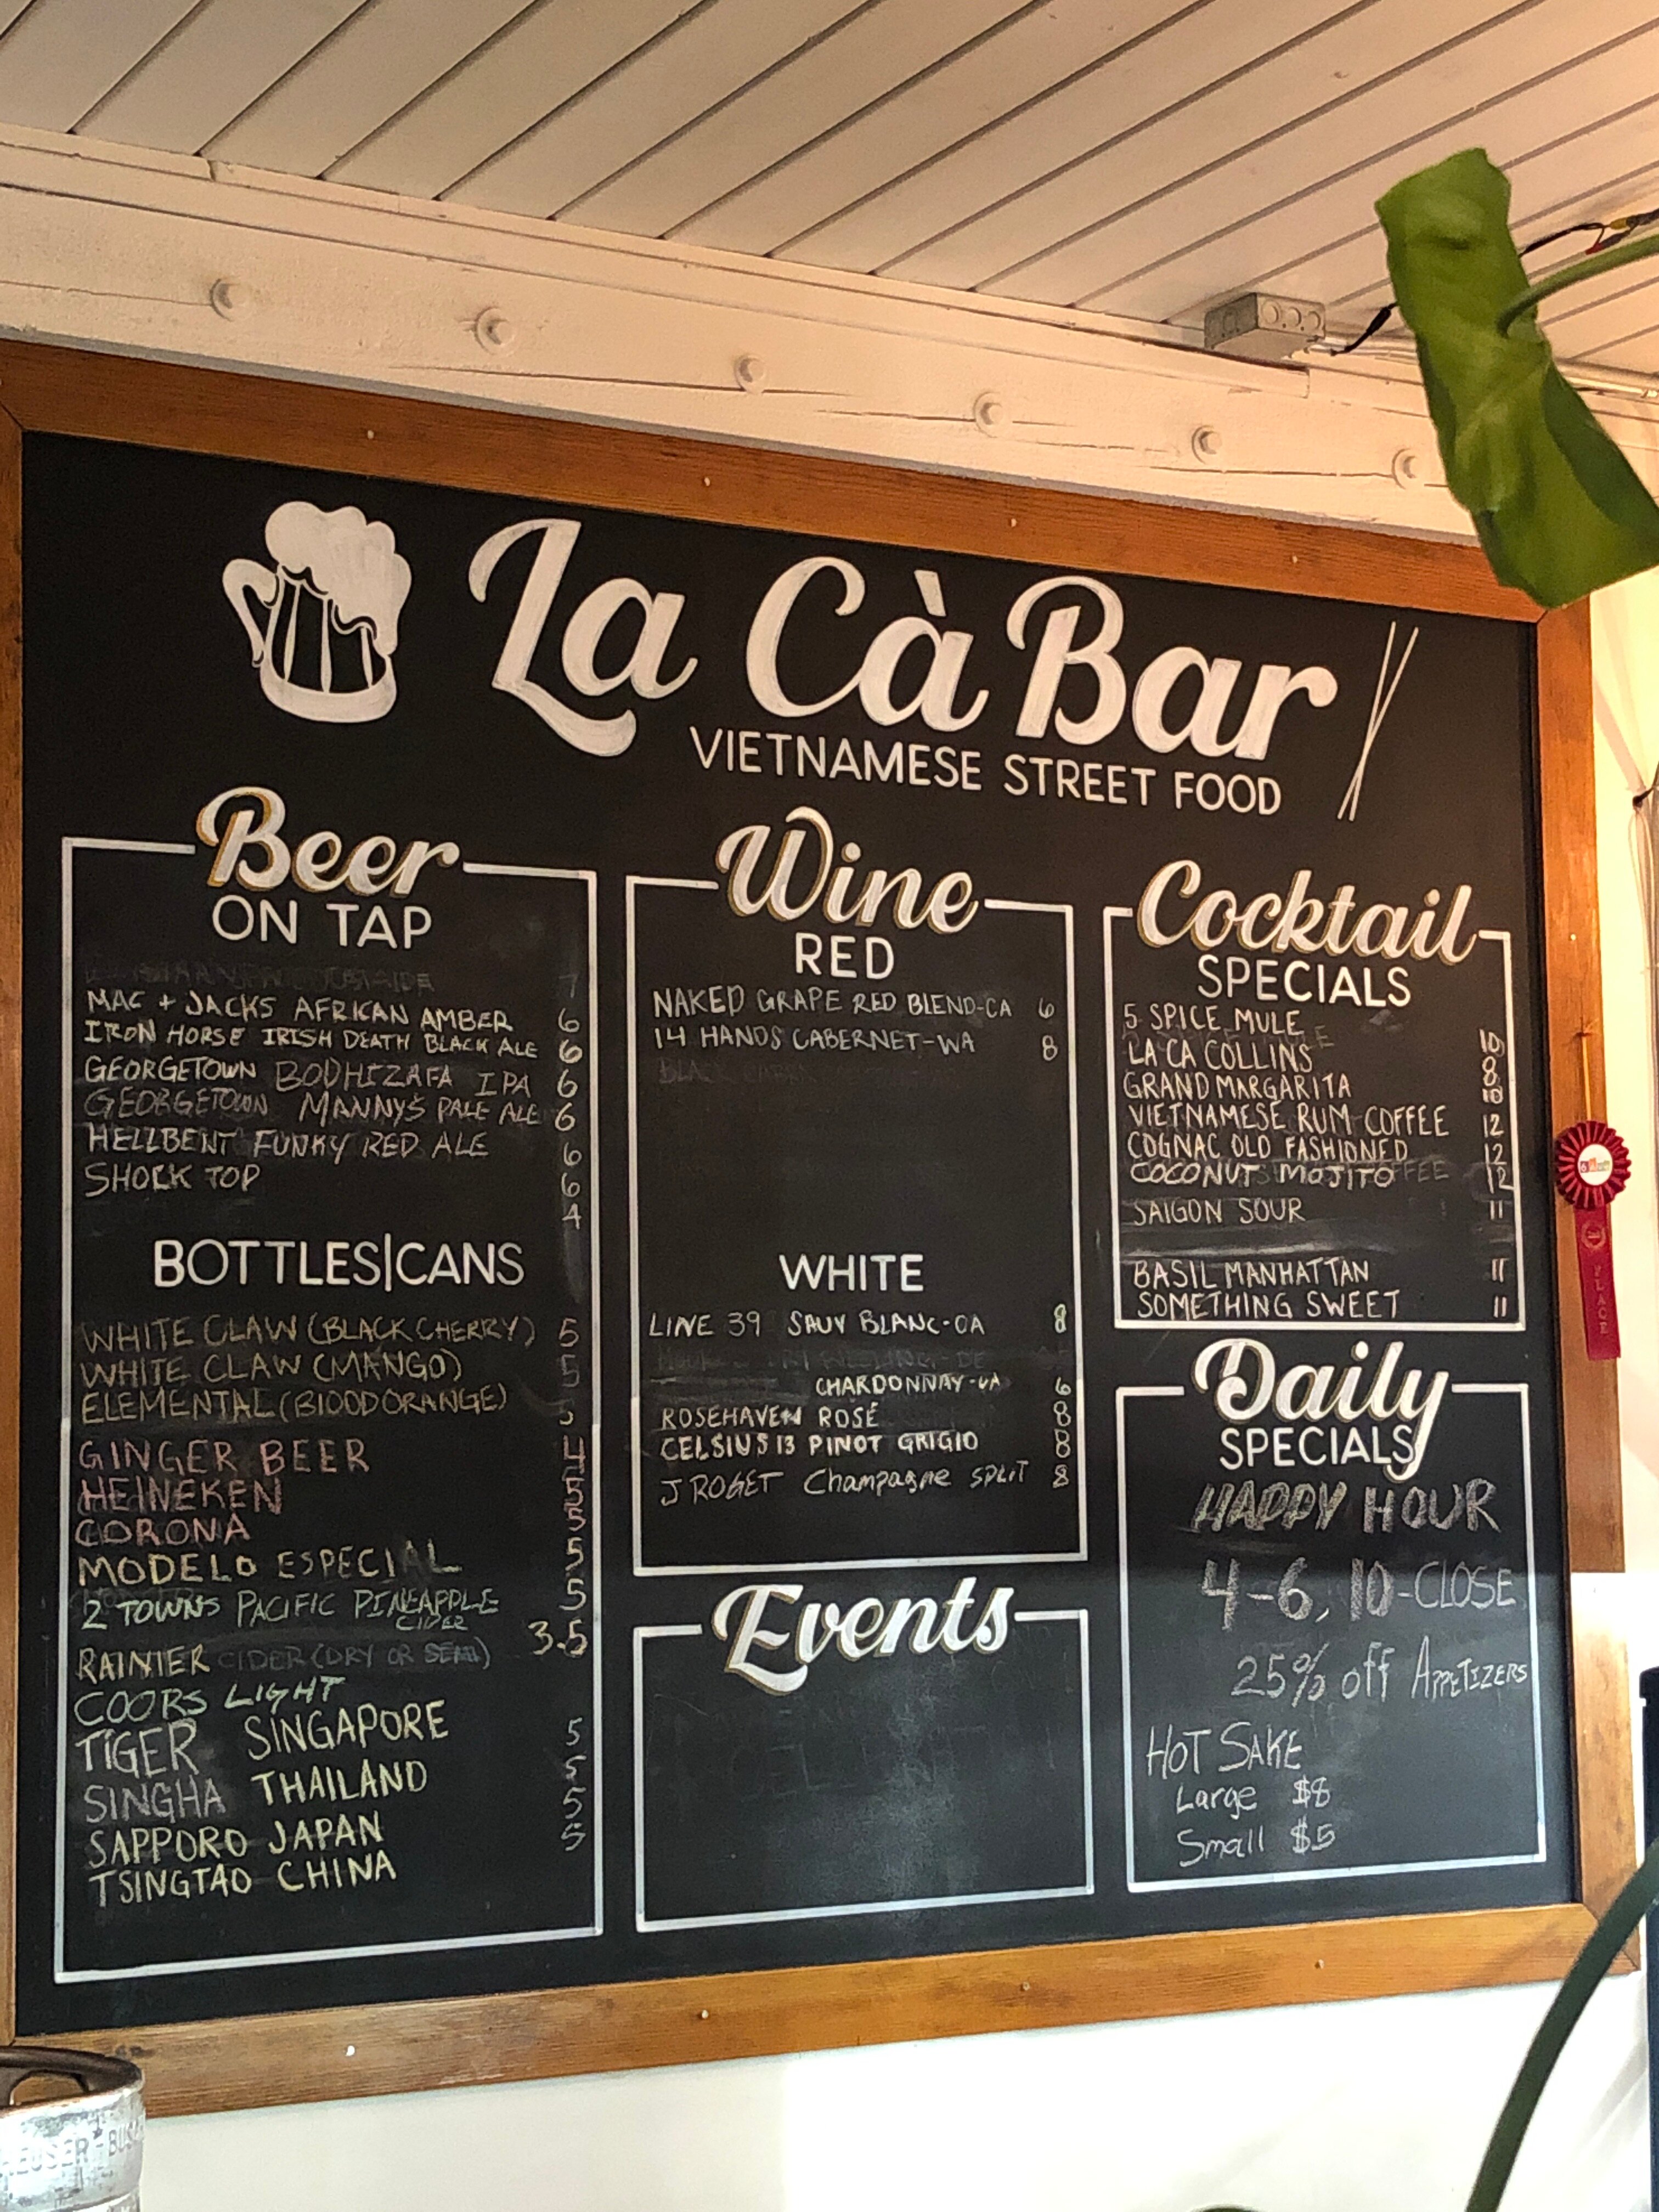 La Cà Bar
VIETNAMESE STREET FOOD
Beer
ON TAP
7
MAC + JACKS AFRICAN AMBER 6
IRON HORSE IRISH DEATH BLACK ALE 6
GEORGETOWN BODHIZAFA IPA 6
GEORGETOWN MANNYS PALE ALE 6
HELLBENT FUNKY RED ALE 6
SHOCK TOP 6
4
BOTTLES|CANS
WHITE CLAW (BLACK CHERRY) 5
WHITE CLAW (MANGO) 5
ELEMENTAL (BLOOD ORANGE) 5
GINGER BEER 4
HEINEKEN 5
CORONA 5
MODELO ESPECIAL 5
2 TOWNS PACIFIC PINEAPPLE 5
CIDER
3.5
RAINIER CIDER (DRY OR SEMI)
COORS LIGHT
TIGER SINGAPORE 5
SINGHA THAILAND 5
SAPPORO JAPAN 5
TSINGTAO CHINA 5
Wine
RED
NAKED GRAPE RED BLEND-CA 6
14 HANDS CABERNET-WA 8
BLACK
WHITE
LINE 39 SAUV BLANC-CA 8
CHARDONNAY-CA 6
ROSEHAVEN ROSÉ 8
CELSIUS 13 PINOT GRIGIO 8
J ROGET Champagne SPLIT 8
Events
Cocktail
SPECIALS
5 SPICE MULE
LA CA COLLINS 10
GRAND MARGARITA 8
10
VIETNAMESE RUM COFFEE 12
COGNAC OLD FASHIONED 12
COCONUT MOJITO 12
SAIGON SOUR 11
BASIL MANHATTAN 11
SOMETHING SWEET 11
Daily
SPECIALS
HAPPY HOUR
4-6, 10-CLOSE
25% off APPETIZERS
HOT SAKE
Large $8
Small $5
PLACE